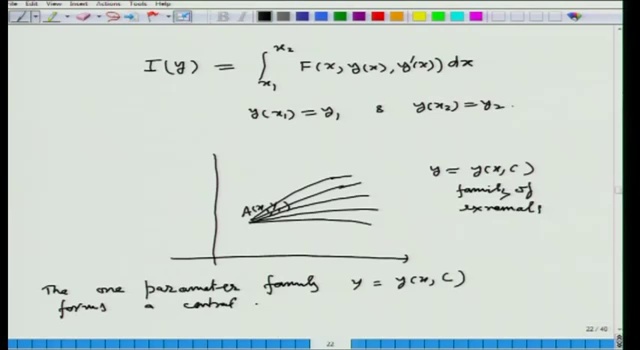 Edit View Insert Actions Tools Help
I(y) = ∫_{x₁}^{x₂} F(x, y(x), y'(x)) dx
y(x₁) = y₁ & y(x₂) = y₂.
y = y(x, C)
family of
exremals
A(x₁, y₁)
The one parameter family y = y(x, C)
forms a central.
22 / 40
22